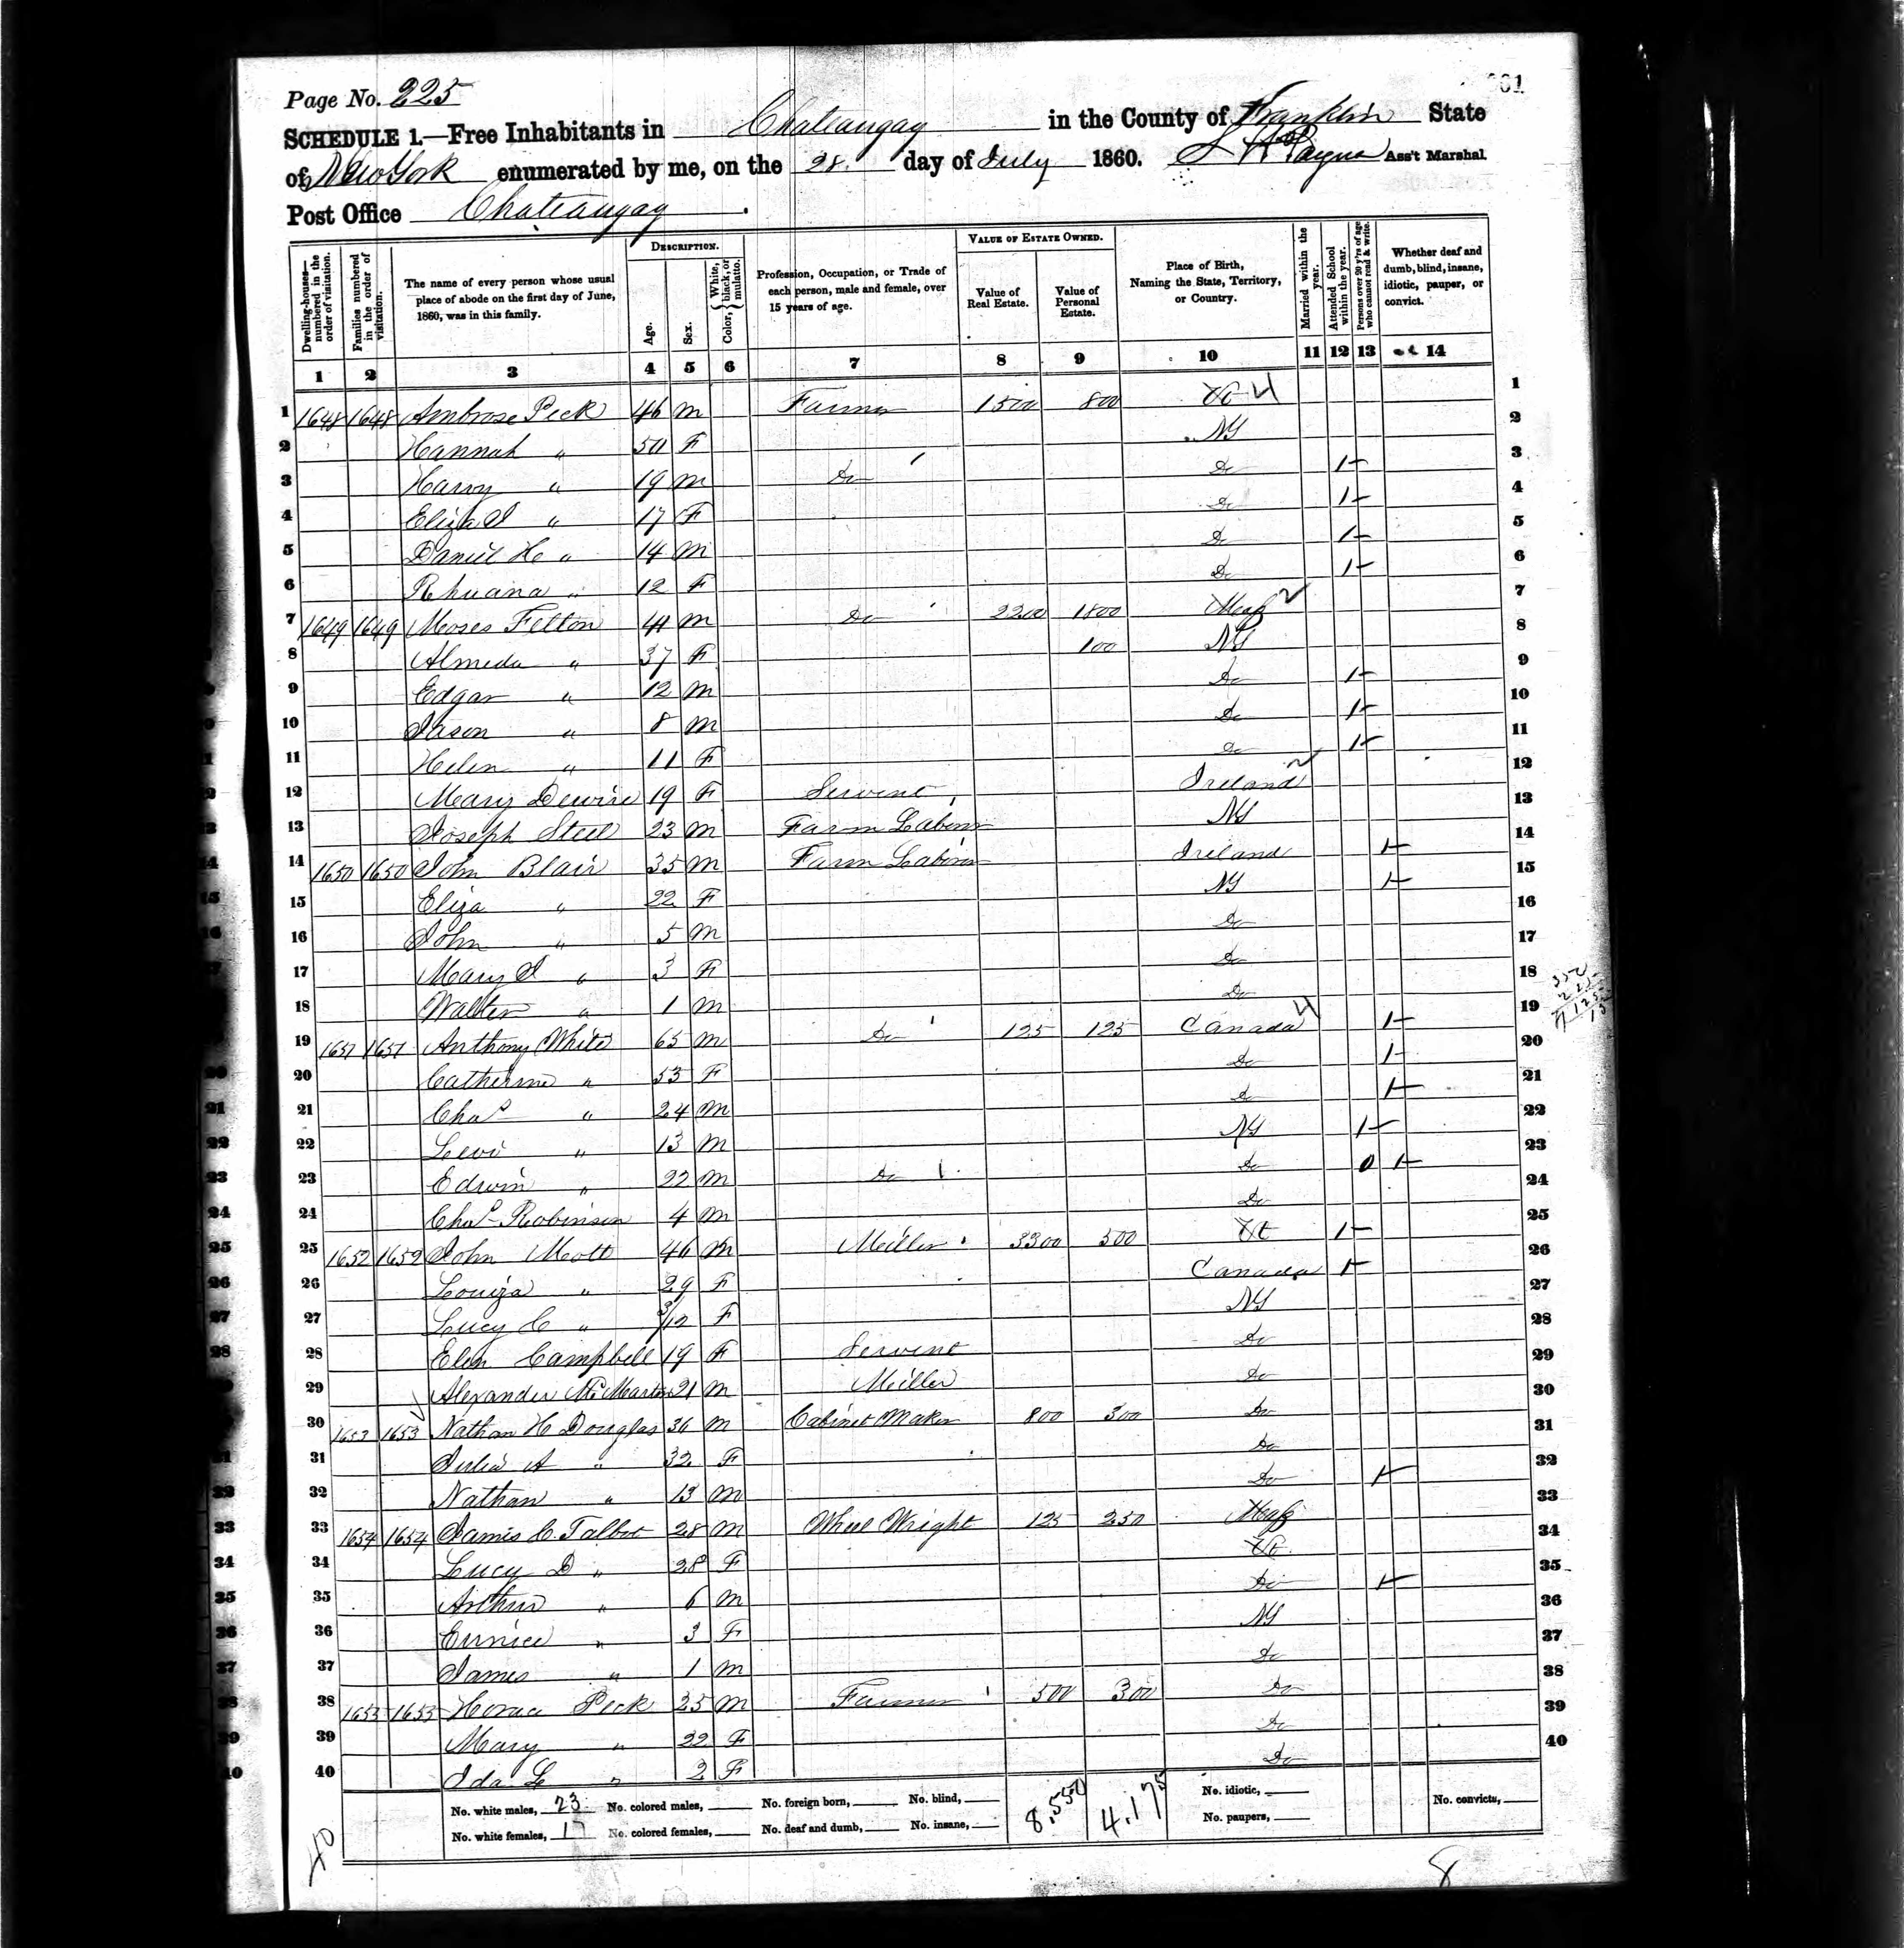 Page No. 225
SCHEDULE 1.—Free Inhabitants in Chateaugay in the County of Franklin State
of New York enumerated by me, on the 28. day of July 1860. Payne Ass't Marshal.
Post Office Chateaugay
Dwelling-houses—numbered in the order of visitation.
Families numbered in the order of visitation.
The name of every person whose usual place of abode on the first day of June, 1860, was in this family.
DESCRIPTION.
Age.
Sex.
Color, { White, black, or mulatto.
Profession, Occupation, or Trade of each person, male and female, over 15 years of age.
VALUE OF ESTATE OWNED.
Value of Real Estate.
Value of Personal Estate.
Place of Birth, Naming the State, Territory, or Country.
Married within the year.
Attended School within the year.
Persons over 20 y'rs of age who cannot read & write.
Whether deaf and dumb, blind, insane, idiotic, pauper, or convict.
1 2 3 4 5 6 7 8 9 10 11 12 13 14
1 1648 1648 Ambrose Peck 46 m Farmer 1500 800 Vt 4 1
2 Hannah " 50 F NY 2
3 Harvy " 19 m Do Do 1 3
4 Eliza J " 17 F Do 1 4
5 Daniel H " 14 m Do 1 5
6 Rhuana " 12 F Do 1 6
7 1649 1649 Moses Felton 41 m Do 2200 1800 Mass 7
8 Almeda " 37 F 100 NY 8
9 Edgar " 12 m Do 1 9
10 Jason " 8 m Do 1 10
11 Helen " 11 F Do 1 11
12 Mary Dewire 19 F Servent Ireland 12
13 Joseph Steel 23 m Farm Laborer NY 13
14 1650 1650 John Blair 35 m Farm Laborer Ireland 1 14
15 Eliza " 22 F NY 1 15
16 John " 5 m Do 16
17 Mary J " 3 F Do 17
18 Walter " 1 m Do 18
19 1651 1651 Anthony White 65 m Do 125 125 Canada 4 1 19
20 Catherine " 53 F Do 1 20
21 Chas " 24 m Do 1 21
22 Levi " 13 m NY 1 22
23 Edwin " 22 m Do Do 0 1 23
24 Chas Robinson 4 m Do 24
25 1652 1652 John Mott 46 m Miller 3300 500 Vt 1 25
26 Louiza " 29 F Canada 1 26
27 Lucy C " 3/12 F NY 27
28 Elen Campbell 19 F Servent Do 28
29 Alexander McMartin 21 m Miller Do 29
30 1653 1653 Nathan H Douglas 36 m Cabinet Maker 800 300 Do 30
31 Julia A " 32 F Do 31
32 Nathan " 13 m Do 1 32
33 1654 1654 James C. Talbot 28 m Wheel Wright 125 250 Mass 33
34 Lucy D " 28 F Vt 34
35 Arthur " 6 m Do 1 35
36 Eunice " 3 F NY 36
37 James " 1 m Do 37
38 1655 1655 Horace Peck 25 m Farmer 500 300 Do 38
39 Mary " 22 F Do 39
40 Ida L " 2 F Do 40
No. white males, 23 No. colored males, No. foreign born, No. blind, 8.550 4.175 No. idiotic,
No. white females, 17 No. colored females, No. deaf and dumb, No. insane, No. paupers, No. convicts,
40
8